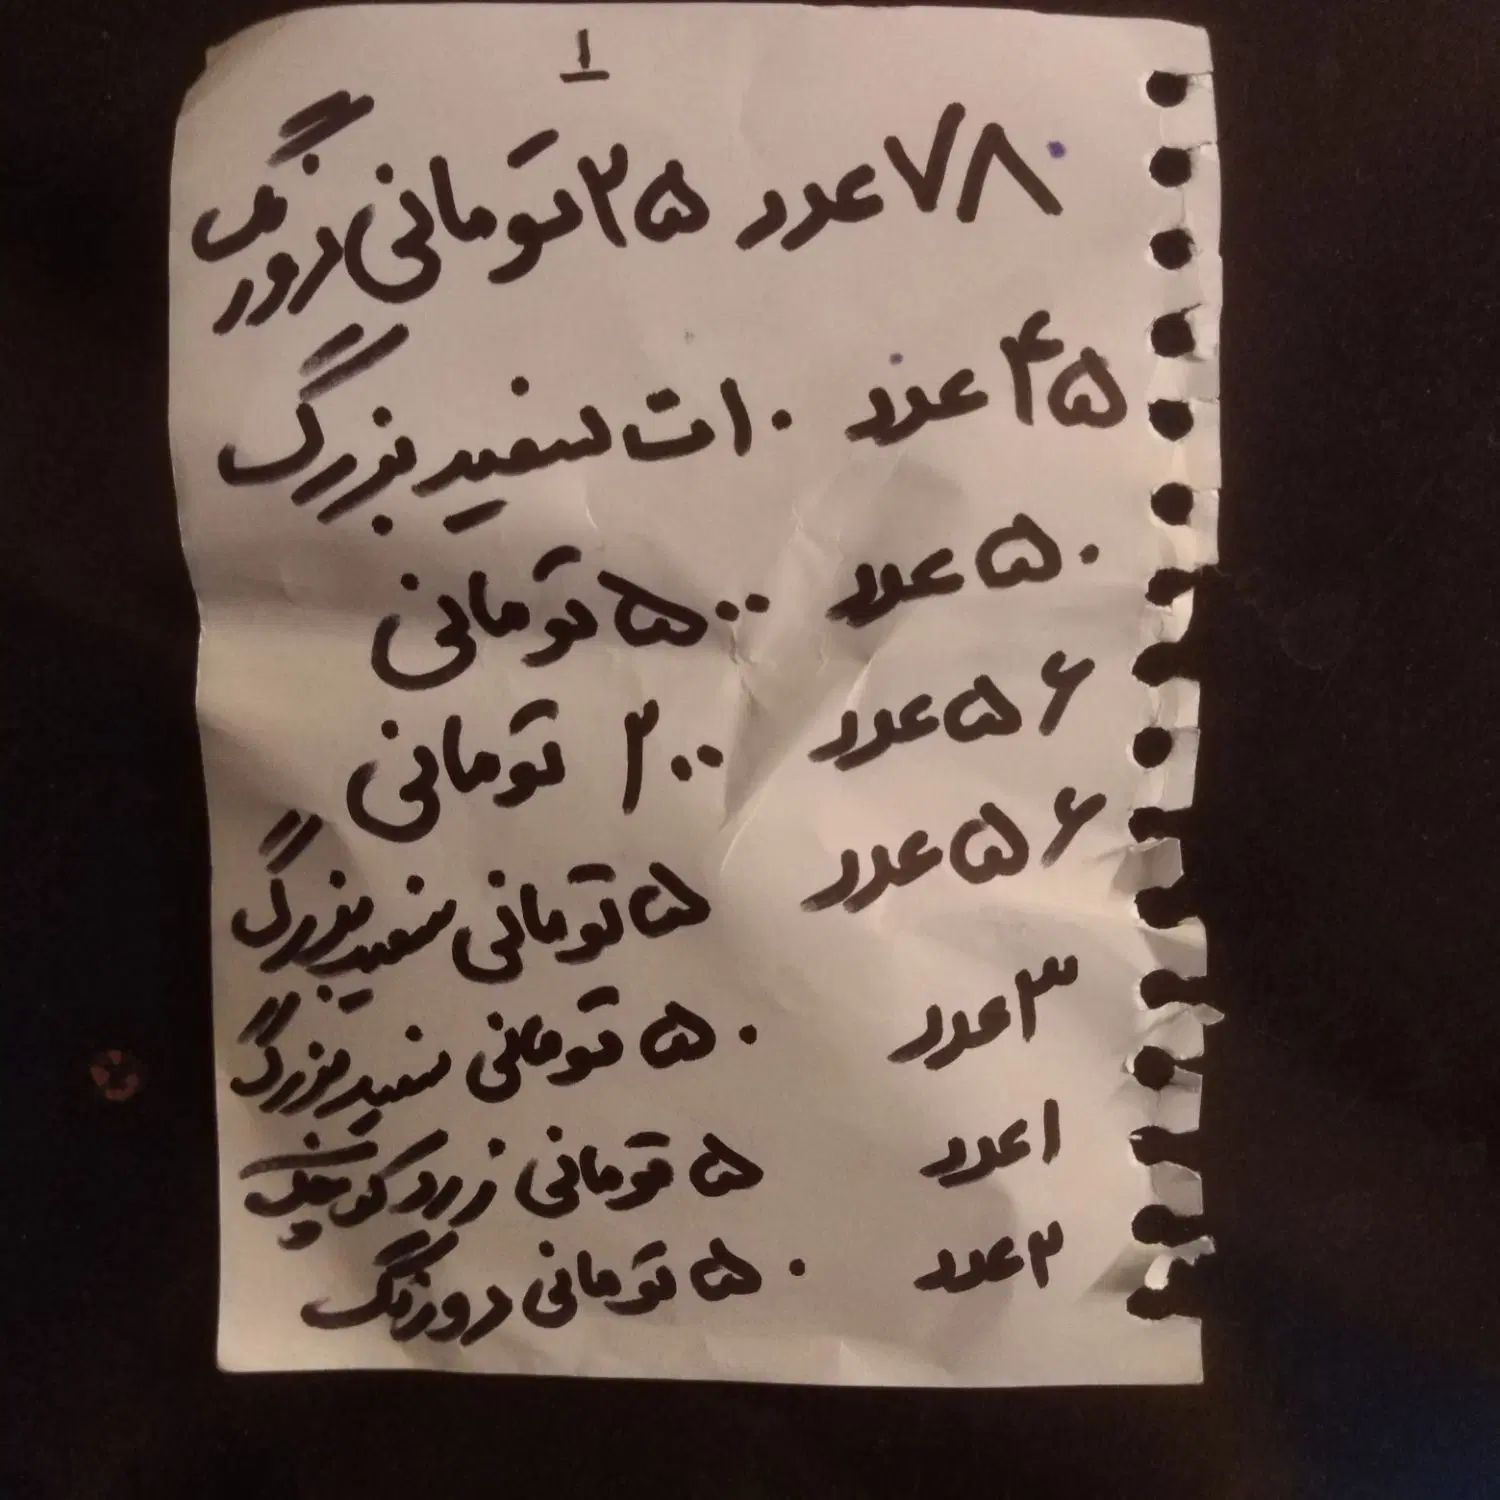 ۱
۷۸ عدد ۲۵ تومانی دورنگ
۴۵ عدد ۱۰ت سفید بزرگ
۵۰ عدد ۵۰۰ تومانی
۵۶ عدد ۲۰۰ تومانی
۵۶ عدد ۵ تومانی سفید بزرگ
۳ عدد ۵۰ تومانی سفید بزرگ
۱ عدد ۵ تومانی زرد کوچک
۲ عدد ۵۰ تومانی دورنگ